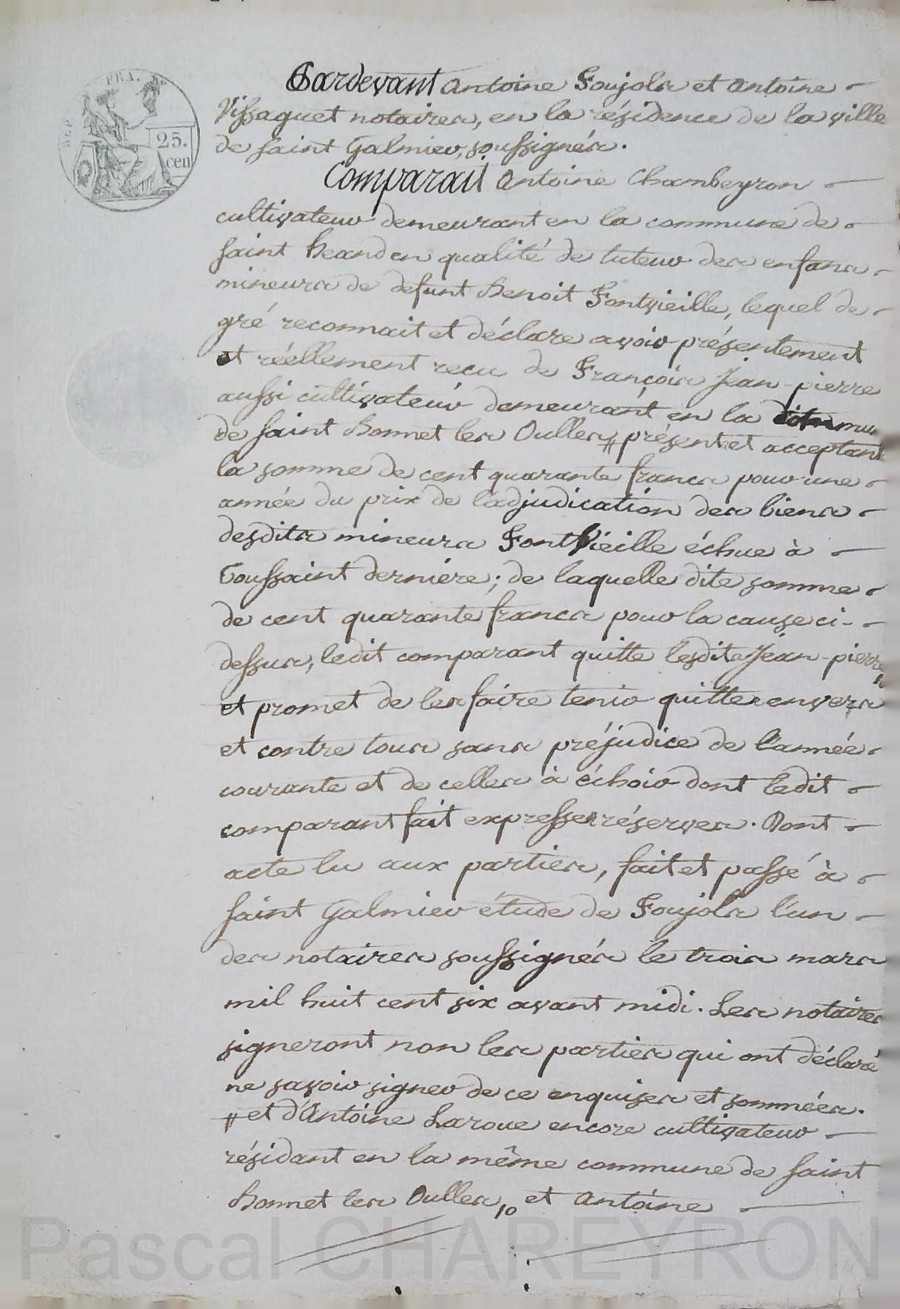 REP. FRA.
25.
cen
Pardevant Antoine Soujols et Antoine
Vissaguet notaires, en la résidence de la ville
de saint Galmier, soussignés.
Comparait Antoine Chambeyron
cultivateur demeurant en la commune de
saint heand en qualité de tuteur des enfans
mineurs de defunt Benoit Fontvieille, lequel de
gré reconnait et déclare avoir présentement
et réellement reçu de François Jean-pierre
aussi cultivateur demeurant en la commune
de saint Bonnet les Oulles # présent et acceptant
la somme de cent quarante francs pour une
année du prix de l'adjudication des biens
desdits mineurs Fontvieille échue à
Toussaint dernière; de laquelle dite somme
de cent quarante francs pour la cause ci-
dessus, ledit comparant quitte lesdits Jean-pierre
et promet de les faire tenir quittes envers
et contre tous sans préjudice de l'année
courante et de celles à échoir dont ledit
comparant fait expresses réserves. Dont
acte lu aux parties, fait et passé à
saint Galmier étude de Soujols l'un
des notaires soussignés le trois mars
mil huit cent six avant midi. Les notaires
signeront non les parties qui ont déclaré
ne savoir signer de ce enquises et sommées.
# et d'Antoine Laroue encore cultivateur
résidant en la même commune de saint
Bonnet les Oulles, et Antoine
Pascal CHAREYRON